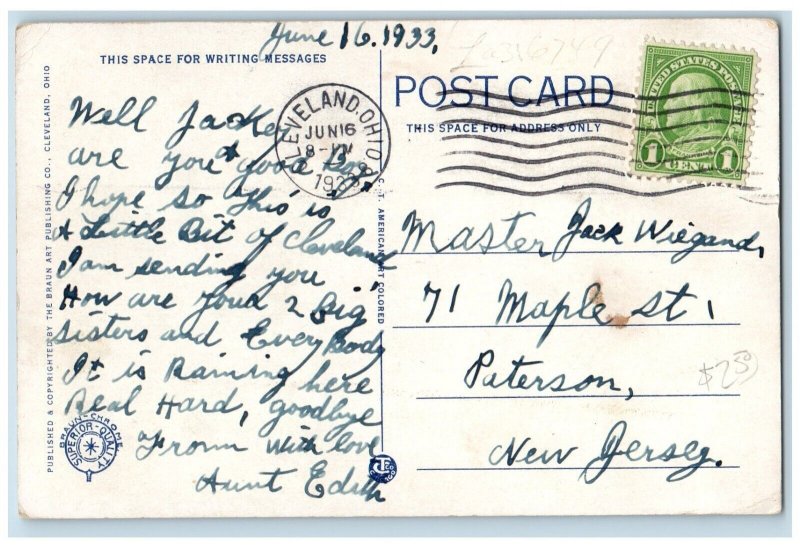 June 16.1933,
THIS SPACE FOR WRITING MESSAGES
Well Jackey
are you a good Boy
I hope so This is
A Little Bit of Cleveland
I am sending you,
How are your 2 Big
Sisters and Every Body
It is Raining here
Real Hard, goodbye
From With love
Aunt Edith
PUBLISHED & COPYRIGHTED BY THE BRAUN ART PUBLISHING CO., CLEVELAND, OHIO
BRAUN-CHROME
SUPERIOR-QUALITY
C. T. AMERICAN ART COLORED
CLEVELAND, OHIO
JUN 16
8-PM
1933
POST CARD
THIS SPACE FOR ADDRESS ONLY
UNITED STATES POSTAGE
1 CENT 1
Master Jack Wiegand,
71 Maple St,
Paterson,
New Jersey.
$2.50